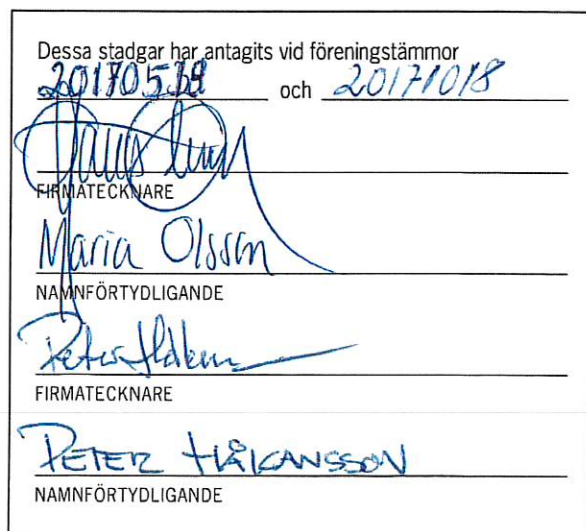 Dessa stadgar har antagits vid föreningstämmor
och 20171018
FIRMATECKNARE
Maria Olsson
NAMNFÖRTYDLIGANDE
Peter
FIRMATECKNARE
PETER HÅKANSSON
NAMNFÖRTYDLIGANDE